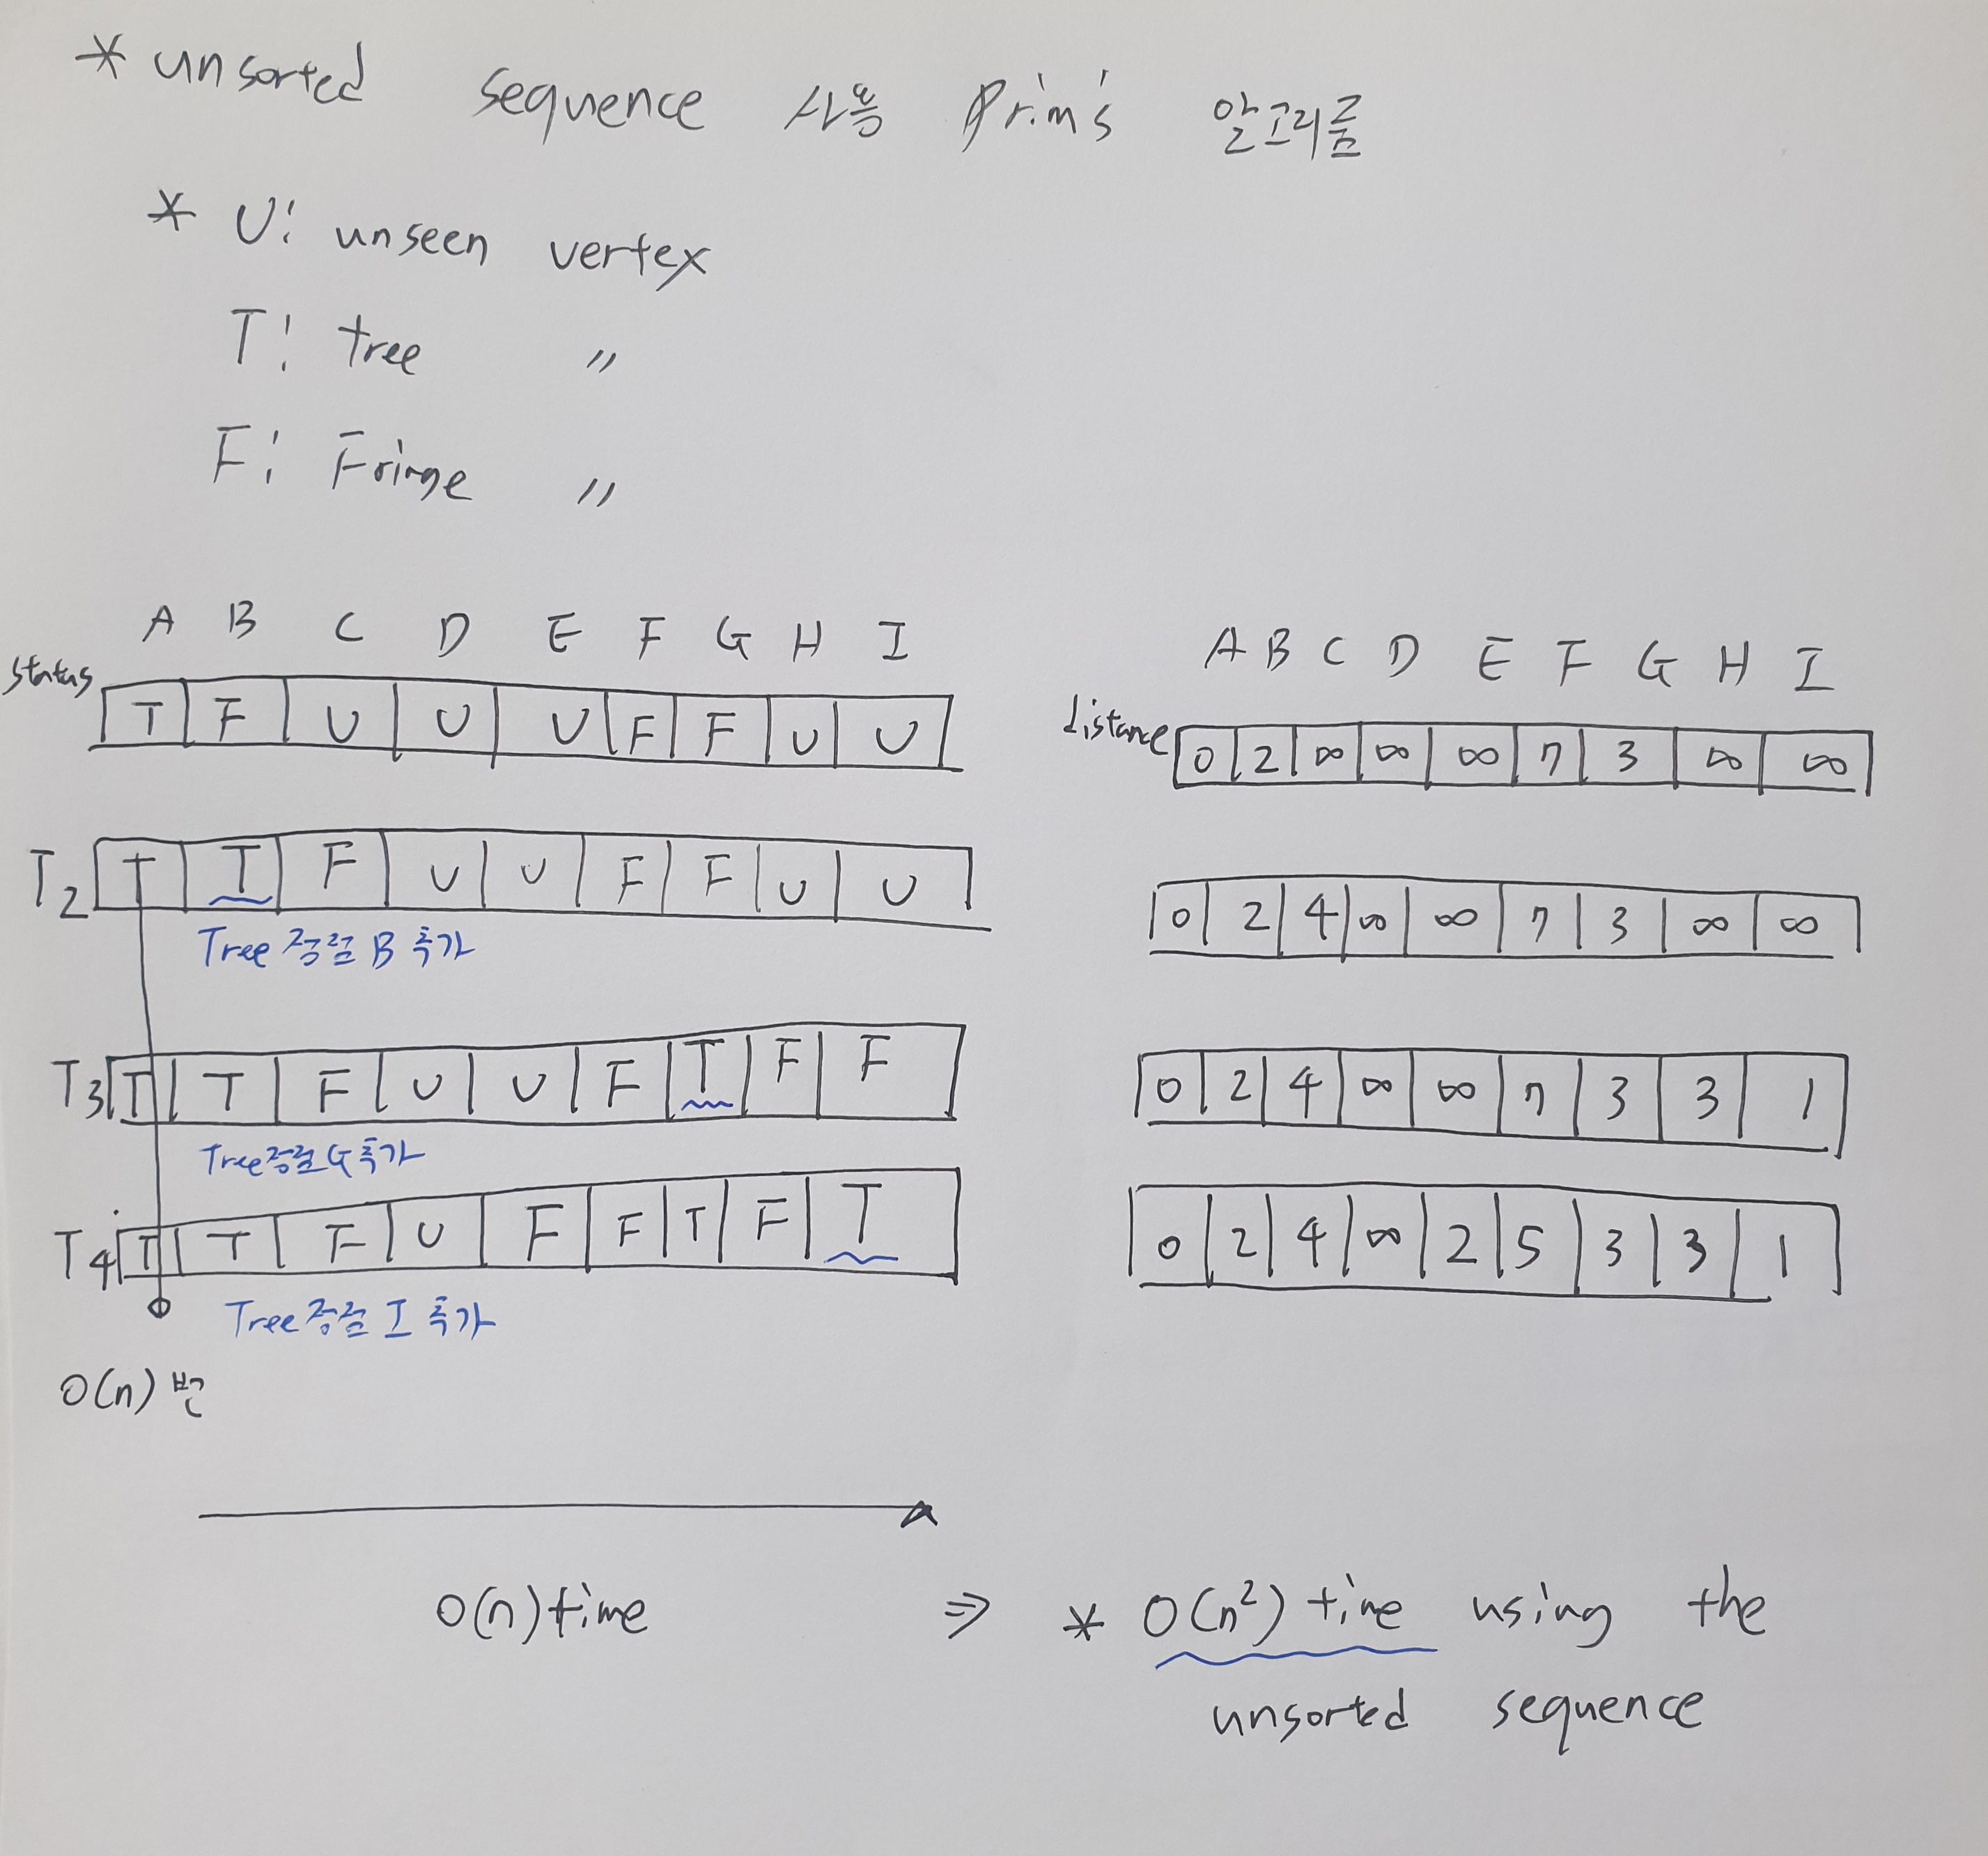 * unsorted sequence 사용 Prim's 알고리즘
* U: unseen vertex
T: tree "
F: Fringe "
A B C D E F G H I
status T F U U U F F U U
A B C D E F G H I
distance 0 2 ∞ ∞ ∞ 7 3 ∞ ∞
T2 T T F U U F F U U
0 2 4 ∞ ∞ 7 3 ∞ ∞
Tree 정점 B 추가
T3 T T F U U F T F F
0 2 4 ∞ ∞ 7 3 3 1
Tree 정점 G 추가
T4 T T F U F F T F T
0 2 4 ∞ 2 5 3 3 1
Tree 정점 I 추가
O(n) 번
O(n) time ⇒ * O(n²) time using the
unsorted sequence